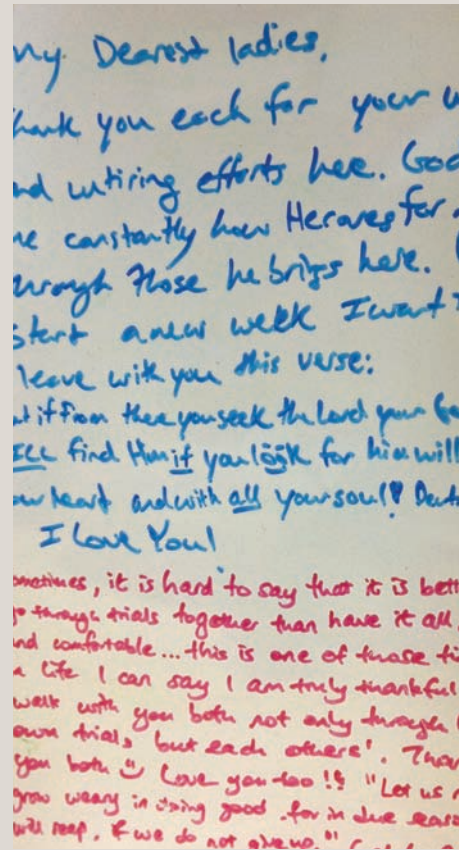 my Dearest ladies,
hank you each for your u
nd untiring efforts hee. God
e constantly how Hecares for
hrough those he brigs here.
start anew week I want
leave with you this verse:
ut if from thee you seek the Lord your God
ILL find Him if you look for him will
our heart and with all your soul! Deut
I Love You!
ometimes, it is hard to say that it is bett
go through trials together than have it all,
nd comfortable... this is one of those ti
n life I can say I am truly thankful
walk with you both not only through
own trials, but each others'. Than
you both Love you too!!
"Let us
grow weary in doing good. for in due seaso
will reap, if we do not give up."